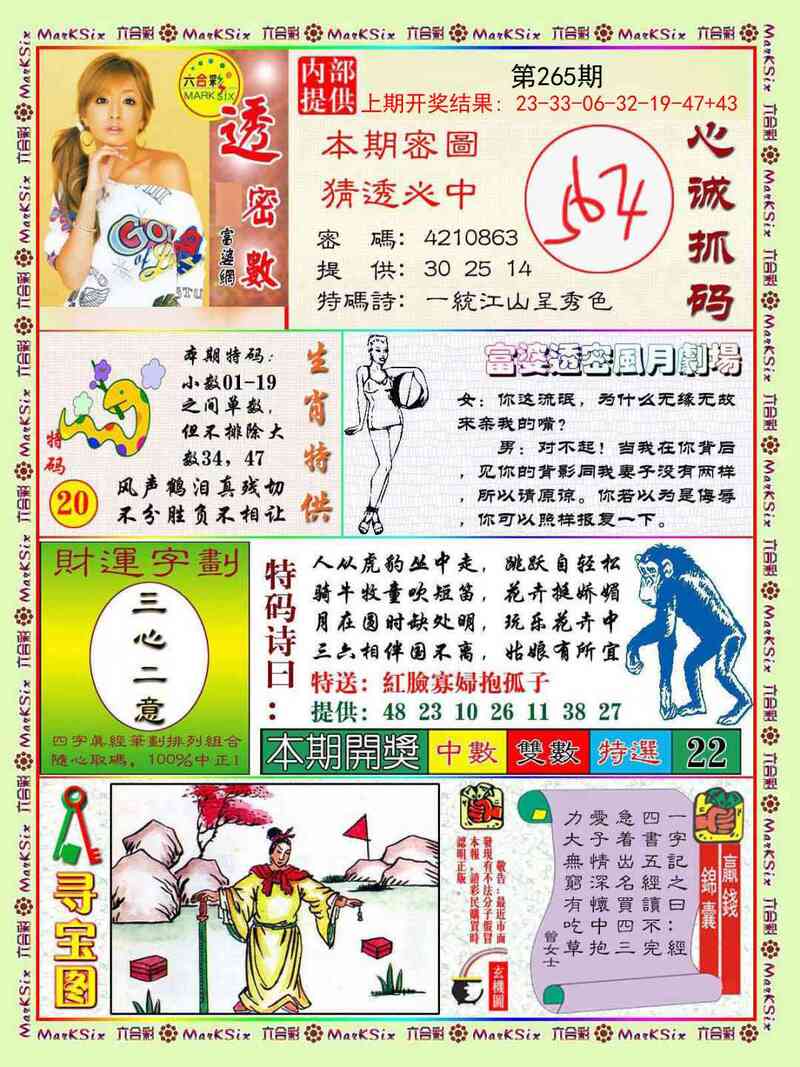 六合彩
MARK SIX
透密數
富婆網
内部
提供
第265期
上期开奖结果：23-33-06-32-19-47+43
本期密圖
猜透必中
密　碼：4210863
提　供：30 25 14
特碼詩：一統江山呈秀色
564
心诚抓码
特码
20
本期特码：
小数01-19
之间单数，
但不排除大
数34，47
风声鹤泪真残切
不分胜负不相让
生肖特供
富婆透密風月劇場
女：你这流氓，为什么无缘无故
来亲我的嘴？
男：对不起！当我在你背后
，见你的背影同我妻子没有两样
，所以请原谅。你若以为是侮辱
，你可以照样报复一下。
財運字劃
三心二意
四字真經筆劃排列組合
隨心取碼，100%中正！
特码诗曰：
人从虎豹丛中走，跳跃自轻松
骑牛牧童吹短笛，花卉挺娇媚
月在圆时缺处明，玩乐花卉中
三六相伴国不离，姑娘有所宜
特送：紅臉寡婦抱孤子
提供：48 23 10 26 11 38 27
本期開獎 中數 雙數 特選 22
寻宝图
敬告：最近市面
發現有不法分子假冒
本報，請彩民購買時
認明正版。
玄機圖
贏錢
錦囊
一字記之曰：經
四書五經讀不完
急着出名買四三
愛子情深懷中抱
力大無窮有吃草
曾女士
MarKSix 六合彩 MarKSix 六合彩 MarKSix 六合彩 MarKSix 六合彩 MarKSix 六合彩